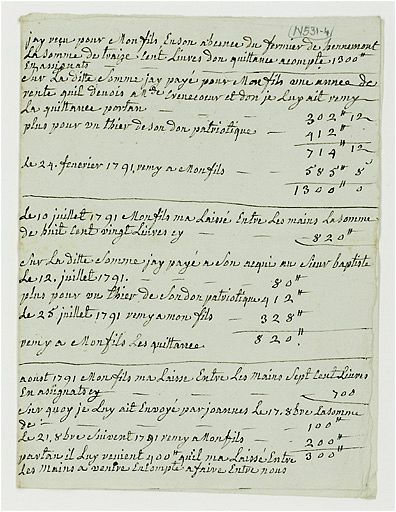 (N531-4)
jay reçu pour Mon fils En son absence du fermier de
La somme de traize Cent Livres don quittance acompte 1300"
En assignats
Sur La ditte Somme jay payé pour Mon fils une année de
rente quil devois a Mde Trenecoeur et don je Luy ait remy
La quittance portan — 302" 12
plus pour un thier de son don patriotique — 412"
714" 12
Le 24. fevrier 1791, remy a Mon fils — 585" 8
1300" 0
Le 10 juillet 1791 Mon fils ma Laissé Entre Les mains La somme
de huit Cent vingt Livres cy — 820"
Sur La ditte Somme jay payé a Son acqui au Sieur baptiste
Le 12. juillet 1791. — 80"
plus pour un thier de Son don patriotique 412"
Le 25 juillet 1791 remy a mon fils — 328"
remy a Mon fils Les quittance 820"
aoust 1791 Mon fils ma Laisse Entre Les mains Sept Cent Livres
En assignats cy — 700
Sur quoy je Luy ait Envoyé par joannes Le 17. 8bre La somme
de — 100"
Le 21. 8bre Suivent 1791 remy a Mon fils — 200"
partan il Luy revient 400" quil ma Laisse Entre 300"
Les mains a venire En Compte a faire Entre nous